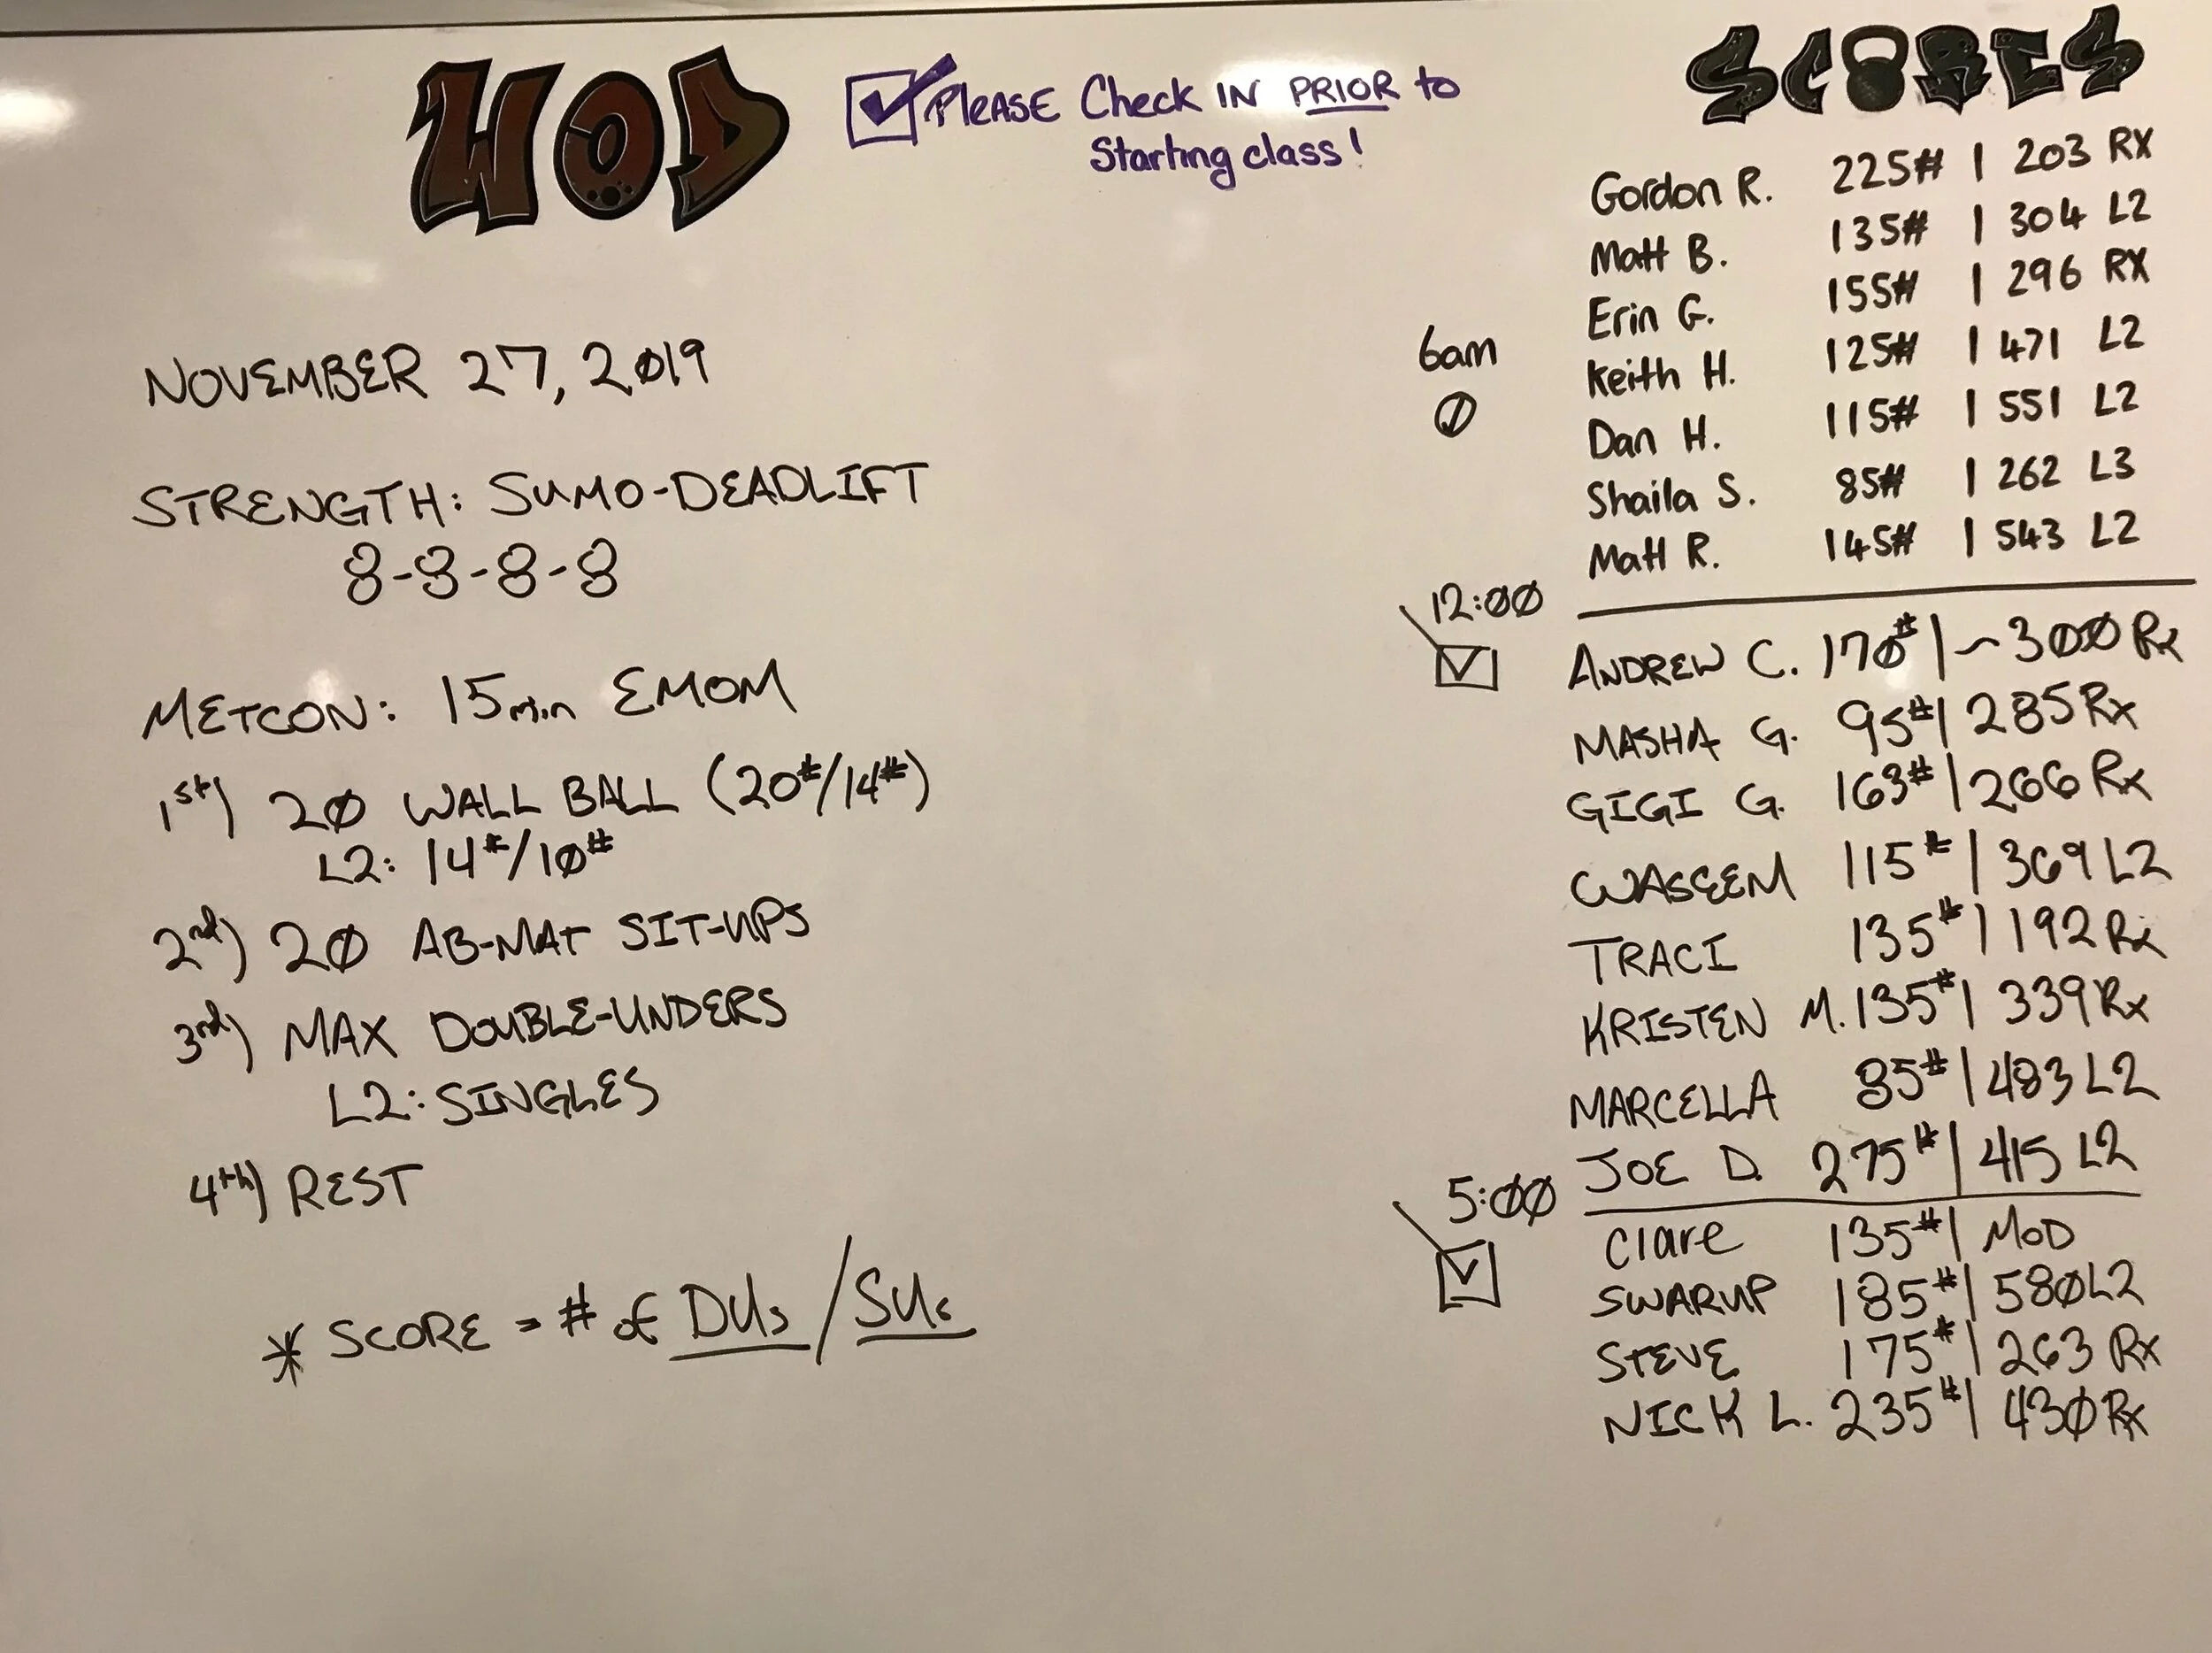 WOD
PLEASE Check IN PRIOR to
Starting class!
NOVEMBER 27, 2019
STRENGTH: SUMO-DEADLIFT
8-8-8-8
METCON: 15min EMOM
1st) 20 WALL BALL (20#/14#)
L2: 14#/10#
2nd) 20 AB-MAT SIT-UPS
3rd) MAX DOUBLE-UNDERS
L2: SINGLES
4th) REST
* SCORE = # of DUs/SUs
SCORES
6am
Ø
Gordon R. 225# | 203 RX
Matt B. 135# | 304 L2
Erin G. 155# | 296 RX
Keith H. 125# | 471 L2
Dan H. 115# | 551 L2
Shaila S. 85# | 262 L3
Matt R. 145# | 543 L2
12:00
ANDREW C. 170# | ~300 Rx
MASHA G. 95# | 285 Rx
GIGI G. 163# | 266 Rx
WASEEM 115# | 369 L2
TRACI 135# | 192 Rx
KRISTEN M. 135# | 339 Rx
MARCELLA 85# | 483 L2
JOE D. 275# | 415 L2
5:00
Clare 135# | MOD
SWARUP 185# | 580 L2
STEVE 175# | 263 Rx
NICK L. 235# | 430 Rx